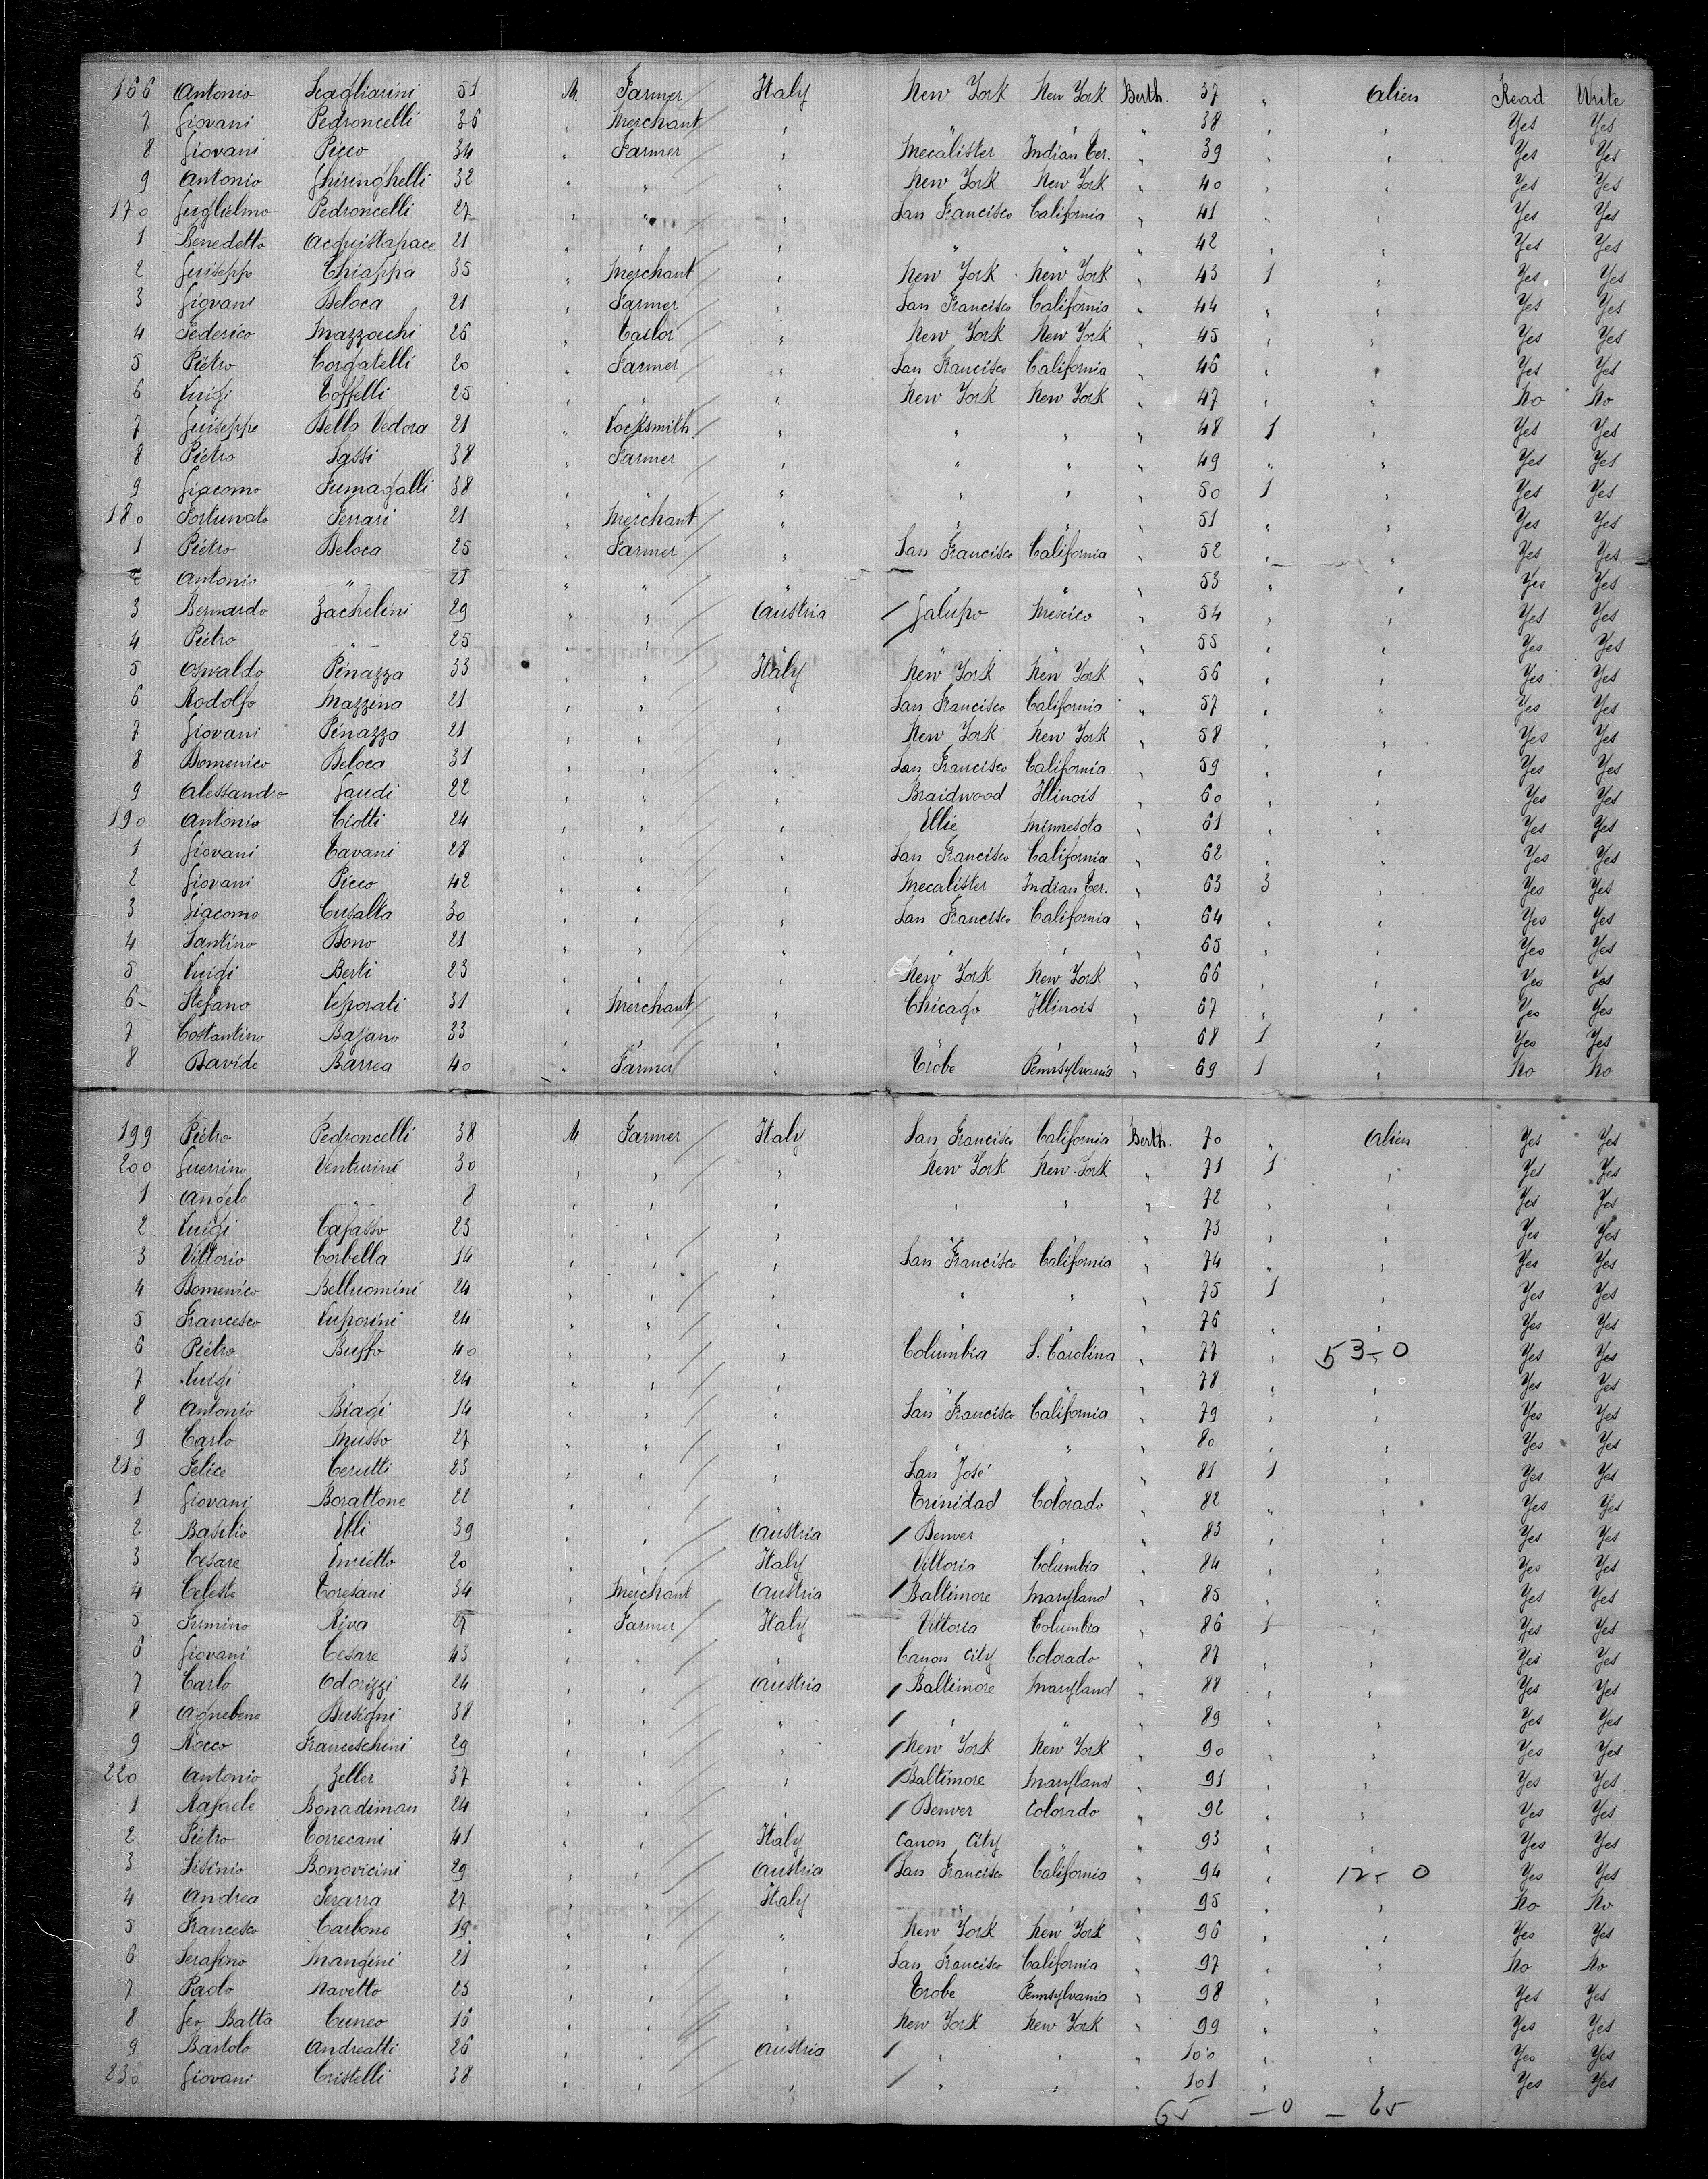 166 Antonio Scagliarini 51 M. Farmer / Italy New York New York Berth. 37 " Alien Read Yes Write Yes
7 Giovani Pedroncelli 36 " Merchant / " " " " 38 " " Yes Yes
8 Giovani Picco 34 " Farmer / " Mecalister Indian Ter. " 39 " " Yes Yes
9 Antonio Ghiringhelli 32 " " / " New York New York " 40 " " Yes Yes
170 Guglielmo Pedroncelli 27 " " / " San Francisco California " 41 " " Yes Yes
1 Benedetto Acquistapace 21 " " / " " " " 42 " " Yes Yes
2 Guiseppe Chiappa 35 " Merchant / " New York New York " 43 1 " Yes Yes
3 Giovani Beloca 21 " Farmer / " San Francisco California " 44 " " Yes Yes
4 Federico Mazzocchi 26 " Tailor / " New York New York " 45 " " Yes Yes
5 Piétro Corgatelli 20 " Farmer / " San Francisco California " 46 " " Yes Yes
6 Luigi Toffelli 25 " " / " New York New York " 47 " " No No
7 Guiseppe Della Vedova 21 " Locksmith / " " " " 48 1 " Yes Yes
8 Piétro Sassi 38 " Farmer / " " " " 49 " " Yes Yes
9 Giacomo Fumagalli 38 " " / " " " " 50 1 " Yes Yes
180 Fortunato Ferrari 21 " Merchant / " " " " 51 " " Yes Yes
1 Piétro Beloca 25 " Farmer / " San Francisco California " 52 " " Yes Yes
2 Antonio " 21 " " / " " " " 53 " " Yes Yes
3 Bernardo Zachelini 29 " " / Austria / Galupo Mexico " 54 " " Yes Yes
4 Piétro " 25 " " / " / " " " 55 " " Yes Yes
5 Osvaldo Pinazza 33 " " / Italy New York New York " 56 " " Yes Yes
6 Rodolfo Mazzina 21 " " / " San Francisco California " 57 " " Yes Yes
7 Giovani Pinazzo 21 " " / " New York New York " 58 " " Yes Yes
8 Domenico Beloca 31 " " / " San Francisco California " 59 " " Yes Yes
9 Alessandro Gaudi 22 " " / " Braidwood Illinois " 60 " " Yes Yes
190 Antonio Ciotti 24 " " / " Ellie Minnesota " 61 " " Yes Yes
1 Giovani Tavani 28 " " / " San Francisco California " 62 " " Yes Yes
2 Giovani Picco 42 " " / " Mecalister Indian Ter. " 63 3 " Yes Yes
3 Giacomo Cusalta 30 " " / " San Francisco California " 64 " " Yes Yes
4 Santino Bono 21 " " / " " " " 65 " " Yes Yes
5 Luigi Berti 23 " " / " New York New York " 66 " " Yes Yes
6 Stefano Veporati 31 " Merchant / " Chicago Illinois " 67 " " Yes Yes
7 Costantino Bajano 33 " " / " " " " 68 1 " Yes Yes
8 Davide Barrea 40 " Farmer / " Trobe Pennsylvania " 69 1 " No No
199 Piétro Pedroncelli 38 M Farmer / Italy San Francisco California Berth. 70 " Alien Yes Yes
200 Guerrino Venturini 30 " " / " New York New York " 71 1 " Yes Yes
1 Angelo " 8 " " / " " " " 72 " " Yes Yes
2 Luigi Cafasso 23 " " / " " " " 73 " " Yes Yes
3 Vittorio Corbella 14 " " / " San Francisco California " 74 " " Yes Yes
4 Domenico Belluomini 24 " " / " " " " 75 1 " Yes Yes
5 Francesco Luporini 24 " " / " " " " 76 " " Yes Yes
6 Piétro Buffo 40 " " / " Columbia S. Carolina " 77 " 53-0 Yes Yes
7 Luigi " 24 " " / " " " " 78 " " Yes Yes
8 Antonio Biagi 14 " " / " San Francisco California " 79 " " Yes Yes
9 Carlo Musso 27 " " / " " " " 80 " " Yes Yes
210 Felice Cerutti 23 " " / " San José " " 81 1 " Yes Yes
1 Giovani Borattone 22 " " / " Trinidad Colorado " 82 " " Yes Yes
2 Basilio Elli 39 " " / Austria / Denver " " 83 " " Yes Yes
3 Cesare Enrietto 20 " " / Italy Vittoria Columbia " 84 " " Yes Yes
4 Celeste Toresani 34 " Merchant Austria / Baltimore Maryland " 85 " " Yes Yes
5 Firmino Riva 9 " Farmer / Italy Vittoria Columbia " 86 1 " Yes Yes
6 Giovani Cesare 43 " " / " Canon City Colorado " 87 " " Yes Yes
7 Carlo Odorizzi 24 " " / Austria / Baltimore Maryland " 88 " " Yes Yes
8 Agnebene Busigni 38 " " / " / " " " 89 " " Yes Yes
9 Rocco Franceschini 29 " " / " / New York New York " 90 " " Yes Yes
220 Antonio Zeller 37 " " / " / Baltimore Maryland " 91 " " Yes Yes
1 Rafaele Bonadiman 24 " " / " / Denver Colorado " 92 " " Yes Yes
2 Piétro Correcani 41 " " / Italy Canon City " " 93 " " Yes Yes
3 Sisinio Bonovicini 29 " " / Austria / San Francisco California " 94 " 12-0 Yes Yes
4 Andrea Ferarra 27 " " / Italy " " " 95 " " No No
5 Francesco Carbone 19 " " / " New York New York " 96 " " Yes Yes
6 Serafino Mangini 21 " " / " San Francisco California " 97 " " No No
7 Paolo Navetto 23 " " / " Trobe Pennsylvania " 98 " " Yes Yes
8 Geo Batta Cuneo 16 " " / " New York New York " 99 " " Yes Yes
9 Bartolo Andreatti 26 " " / Austria / " " " 100 " " Yes Yes
230 Giovani Cristelli 38 " " / " / " " " 101 " " Yes Yes
65 - 0 - 65